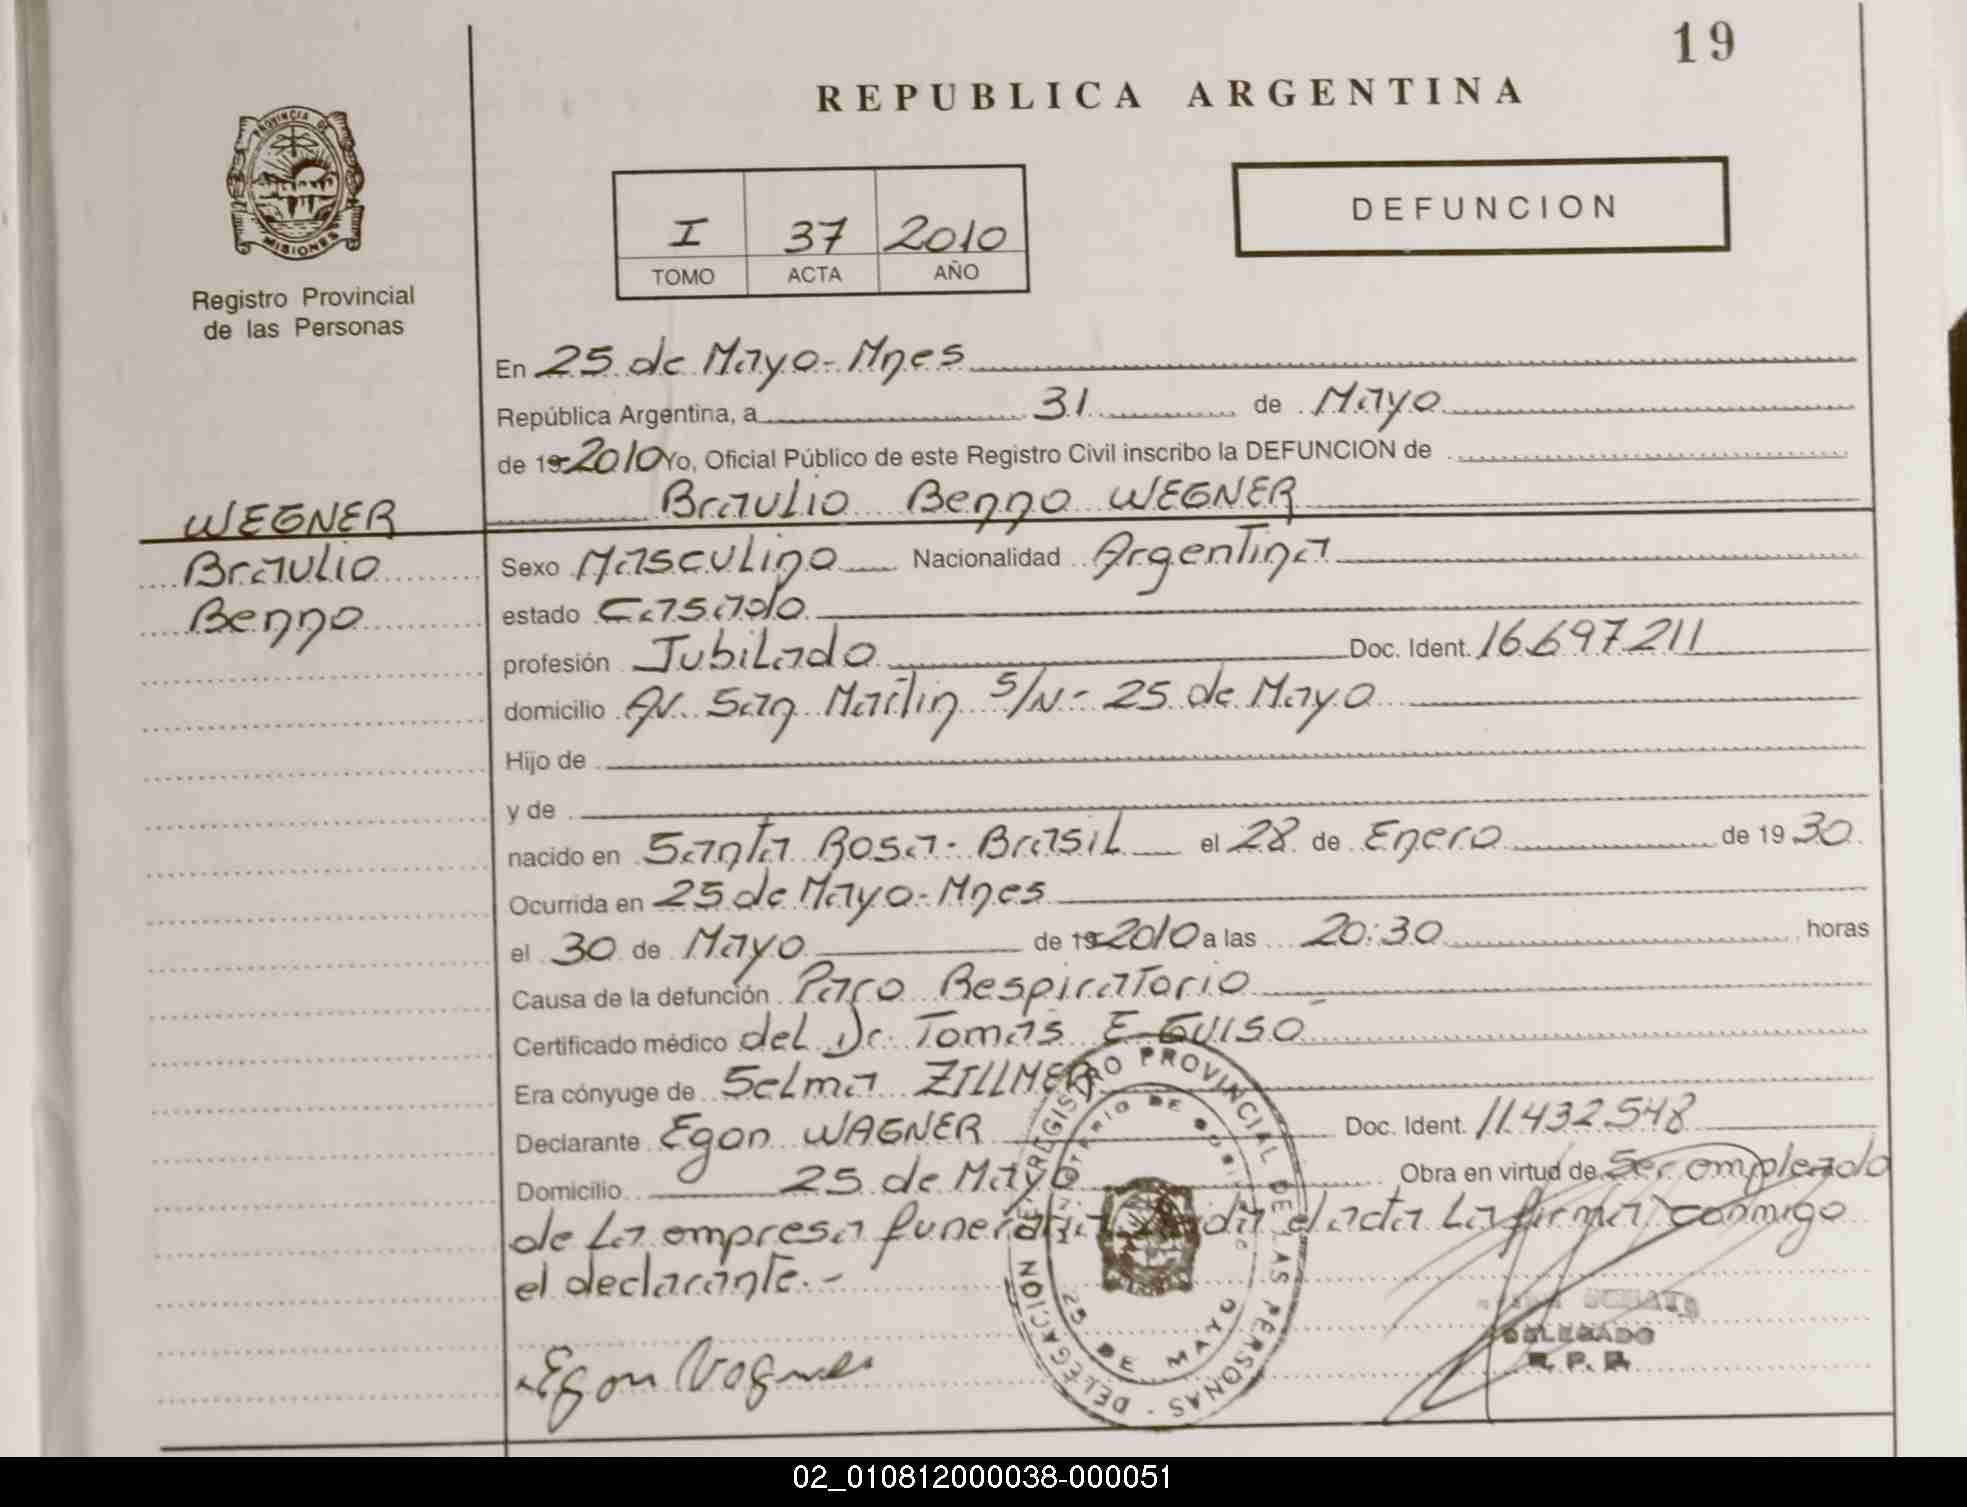 19
REPUBLICA ARGENTINA
PROVINCIA DE
MISIONES
Registro Provincial
de las Personas
I 37 2010
TOMO ACTA AÑO
DEFUNCION
En 25 de Mayo - Mnes
República Argentina, a 31 de Mayo
de 19 2010 Yo, Oficial Público de este Registro Civil inscribo la DEFUNCION de
Braulio Benno WEGNER
WEGNER
Braulio
Benno
Sexo Masculino Nacionalidad Argentina
estado Casado
profesión Jubilado Doc. Ident. 16.697.211
domicilio Av. San Martin S/N - 25 de Mayo
Hijo de
y de
nacido en Santa Rosa - Brasil el 28 de Enero de 19 30
Ocurrida en 25 de Mayo - Mnes
el 30 de Mayo de 19 2010 a las 20:30 horas
Causa de la defunción Paro Respiratorio
Certificado médico del Dr. Tomas E GUISO
Era cónyuge de Selma ZILLMER
Declarante Egon WAGNER Doc. Ident. 11.432.548
Domicilio 25 de Mayo Obra en virtud de Ser empleado
de La empresa funeraria Leida el acta La firma conmigo
el declarante.-
Egon Wagner
REGISTRO PROVINCIAL DE LAS PERSONAS - DELEGACION
25 DE MAYO
DELEGADO
R. P. P.
02_010812000038-000051